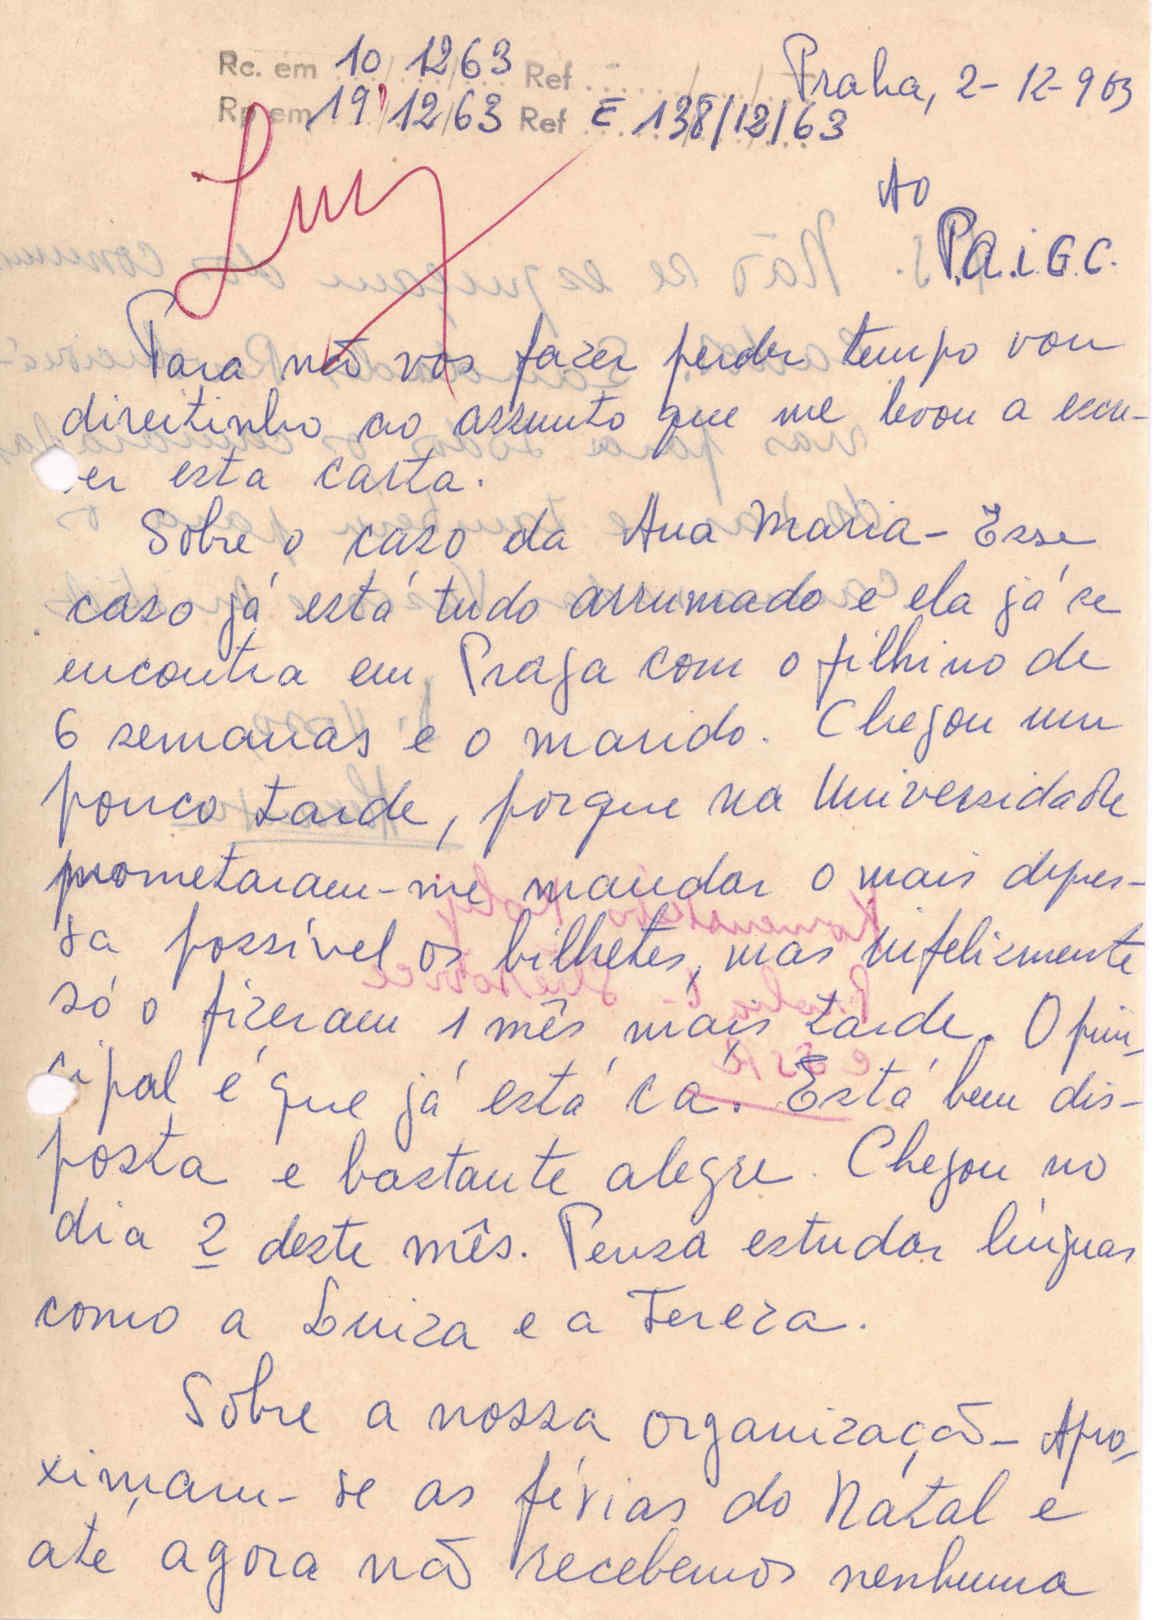 Rc. em 10/12/63 Ref
Praha, 2-12-963
Rp em 19/12/63 Ref E 138/12/63
Luiz
Ao
P.A.I.G.C.
Para não vos fazer perder tempo vou
direitinho ao assunto que me levou a escre-
er esta carta.
Sobre o caso da Ana Maria - Esse
caso já está tudo arrumado e ela já se
encontra em Praga com o filhino de
6 semanas e o marido. Chegou um
pouco tarde, porque na Universidade
prometaram-me mandar o mais depres-
sa possível os bilhetes, mas infelizmente
só o fizeram 1 mês mais tarde. O prin-
cipal é que já está cá. Está bem dis-
posta e bastante alegre. Chegou no
dia 2 deste mês. Pensa estudar línguas
como a Luiza e a Tereza.
Sôbre a nossa organização - Apro-
ximam-se as férias do Natal e
até agora não recebemos nenhuma